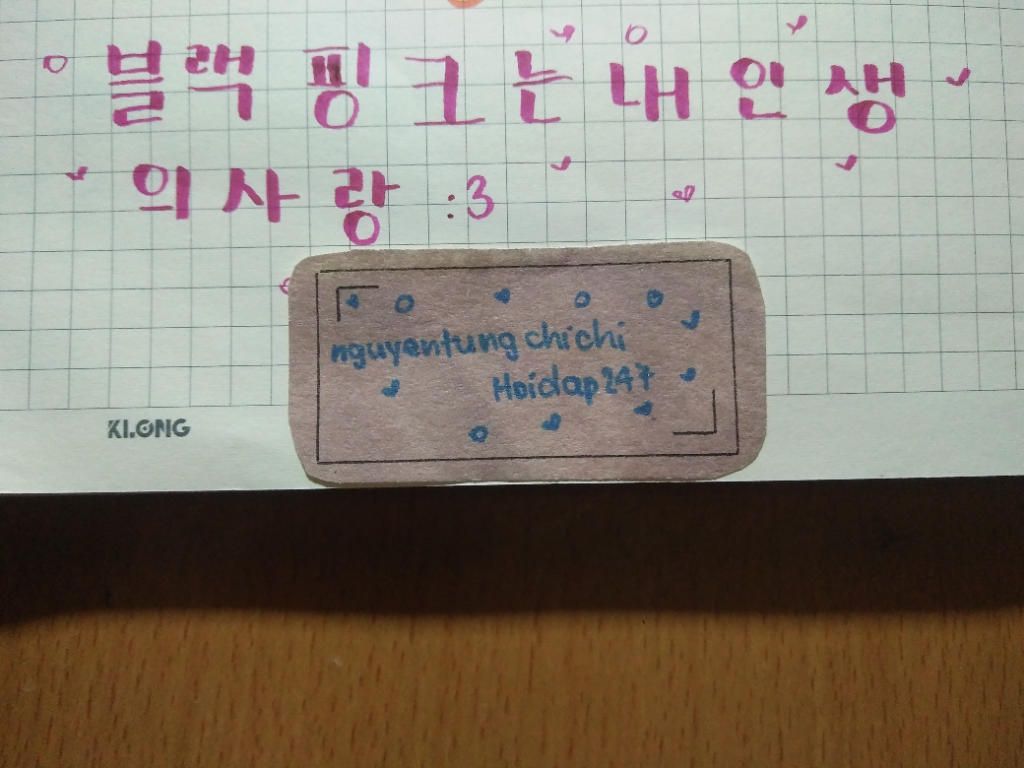 블랙 핑크는 내 인생
의 사랑 :3
nguyentung chichi
Hoidap247
KLONG